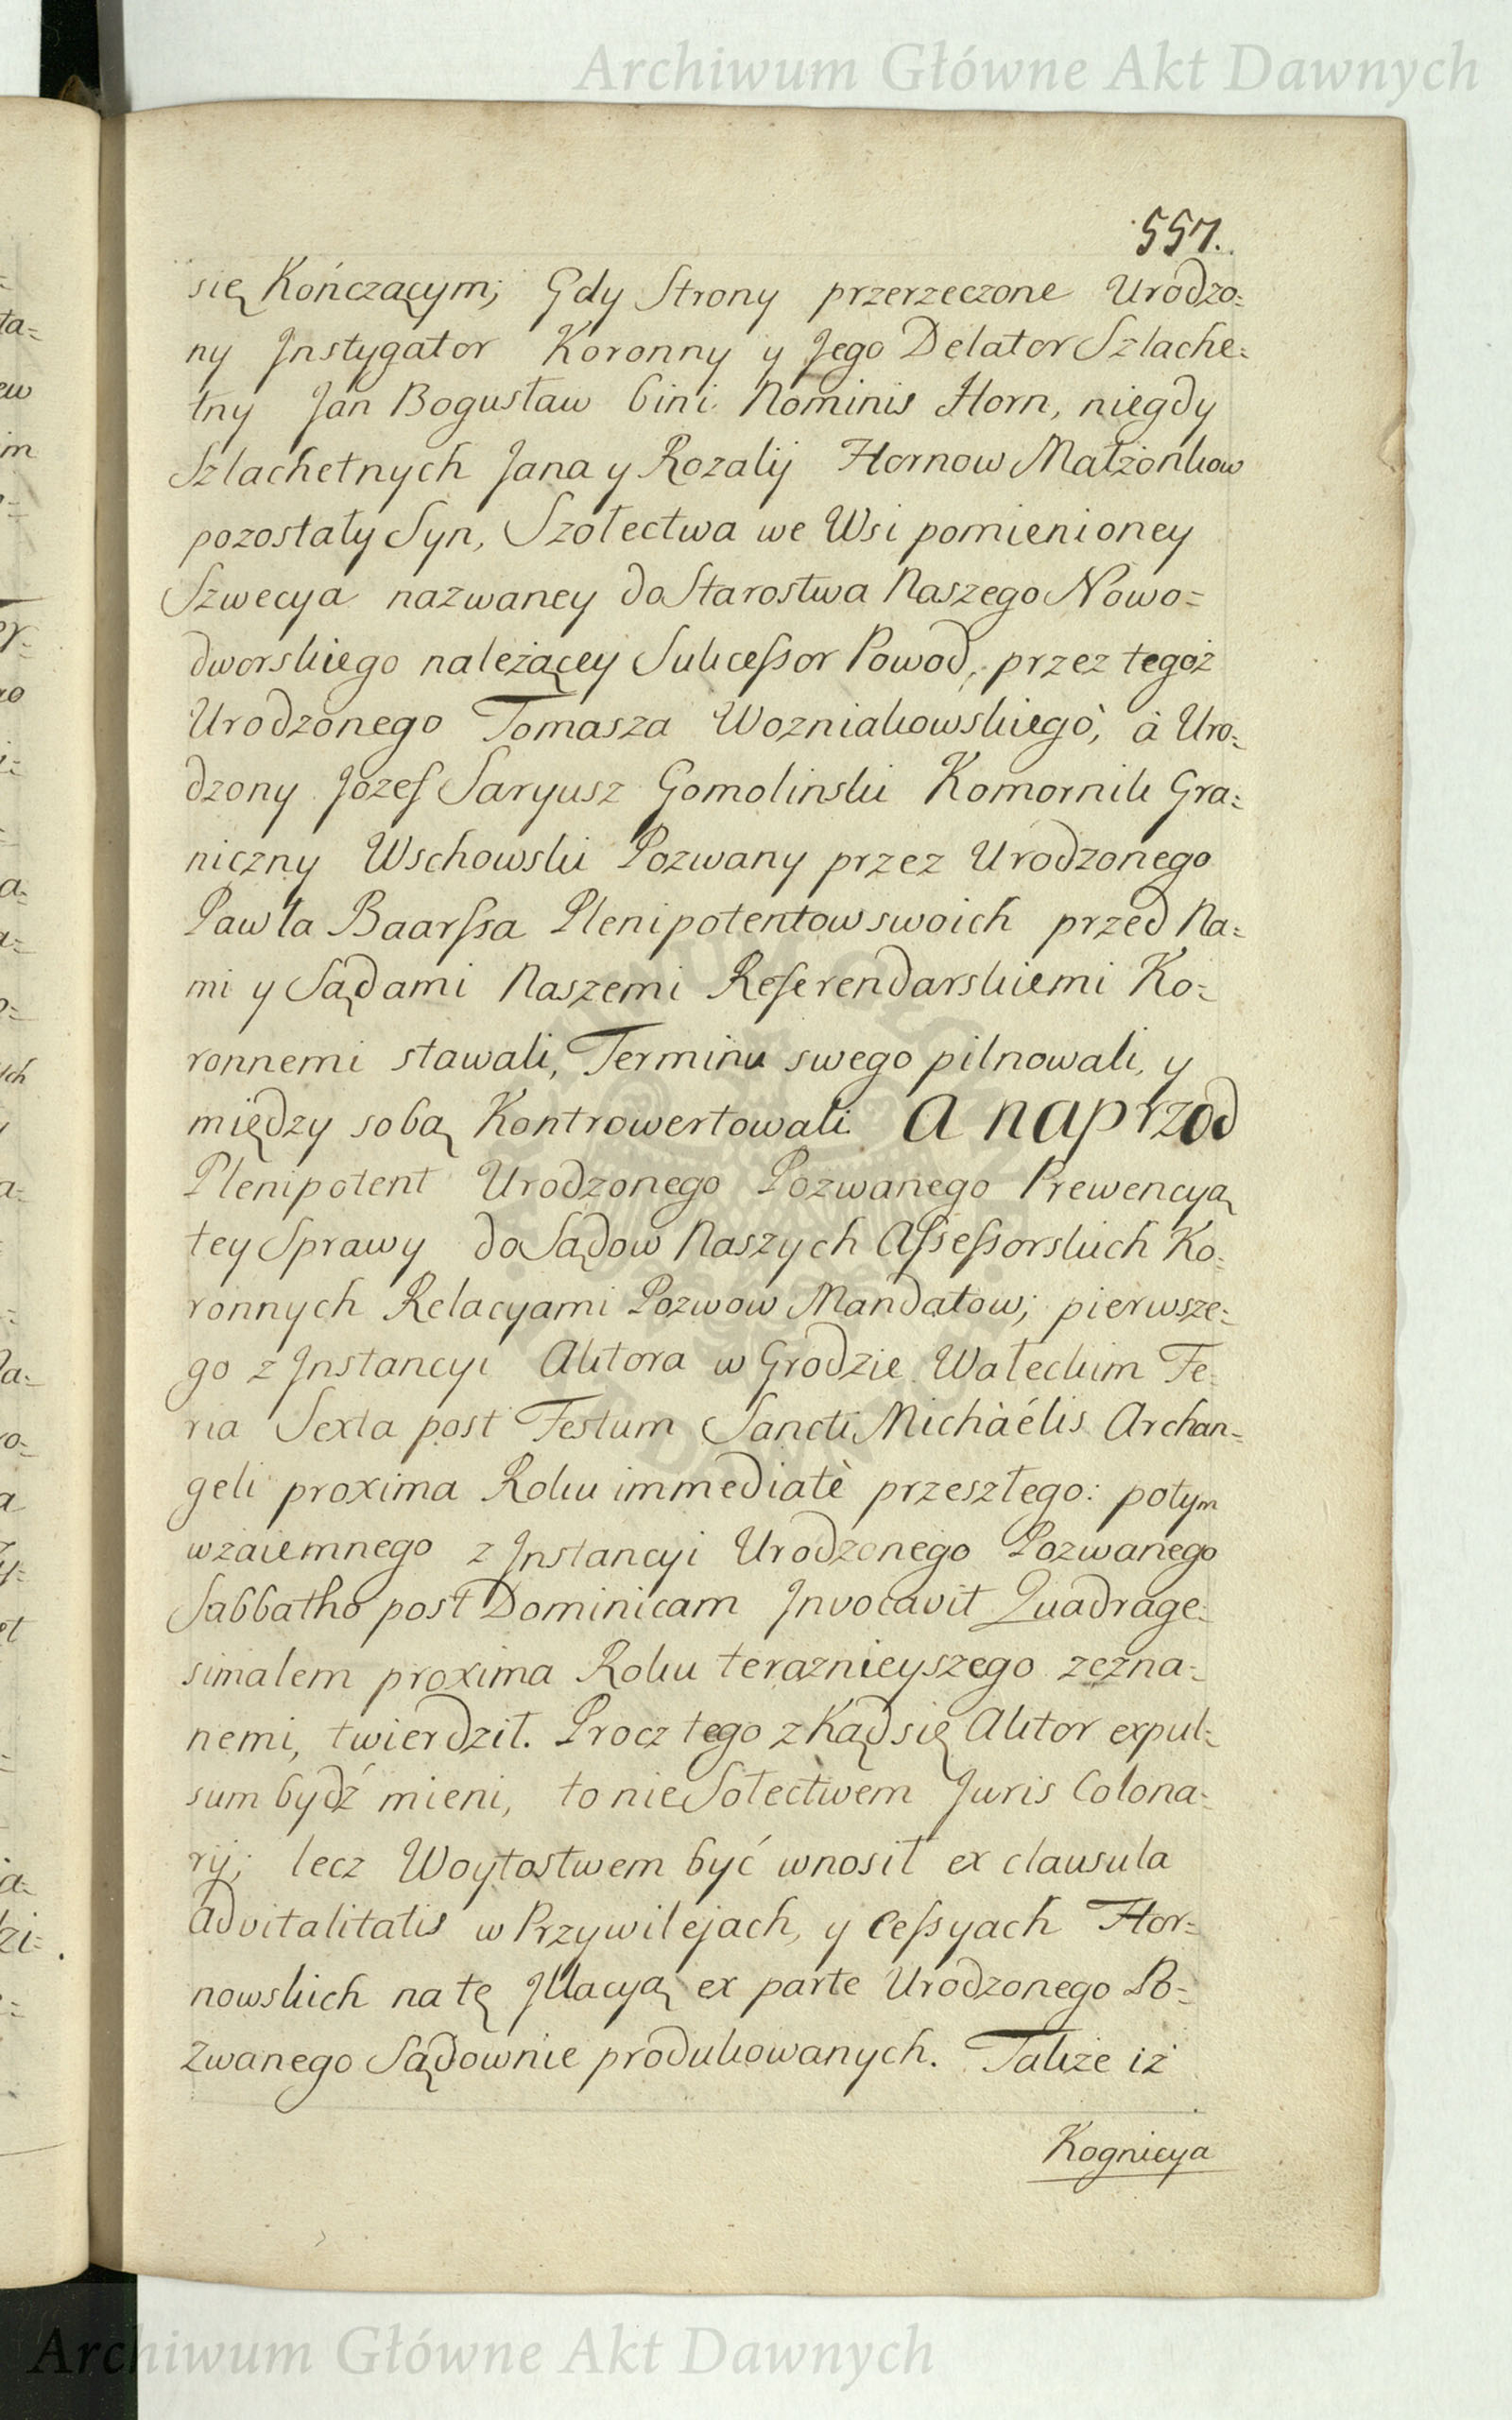 Archiwum Główne Akt Dawnych
557.
się Kończącym; Gdy Strony przerzeczone Urodzo=
ny Jnstygator Koronny y Jego Delator Szlache=
tny Jan Bogusław bini Nominis Horn, niegdy
Szlachetnych Jana y Rozalij Hornow Małżonkow
pozostały Syn, Szołectwa we Wsi pomienioney
Szwecya nazwaney do Starostwa Naszego Nowo=
dworskiego należącey Sukcessor Powod, przez tegoż
Urodzonego Tomasza Wozniakowskiego, à Uro=
dzony Jozef Saryusz Gomolinski Komornik Gra=
niczny Wschowski Pozwany przez Urodzonego
Pawła Baarssa Plenipotentow swoich przed Na=
mi y Sądami Naszemi Referendarskiemi Ko=
ronnemi stawali, Terminu swego pilnowali, y
między sobą Kontrowertowali. A naprzod
Plenipotent Urodzonego Pozwanego Prewencyą
tey Sprawy do Sądow Naszych Assessorskich Ko=
ronnych Relacyami Pozwow Mandatow; pierwsze=
go z Jnstancyi Aktora w Grodzie Wałeckim Fe=
ria Sexta post Festum Sancti Michàélis Archan=
geli proxima Roku immediatè przeszłego: potym
wzaiemnego z Jnstancyi Urodzonego Pozwanego
Sabbatho post Dominicam Jnvocavit Quadrage=
simalem proxima Roku teraznieyszego zezna=
nemi, twierdził. Procz tego zkąd się Aktor expul=
sum bydź mieni, to nie Sołectwem Juris Colona=
rij; lecz Woytostwem być wnosił ex clausula
advitalitatis w Przywilejach, y Cessyach Hor=
nowskich na tę Jllacyą ex parte Urodzonego Po=
zwanego Sądownie produkowanych. Takze iż
Kognicya
Archiwum Główne Akt Dawnych